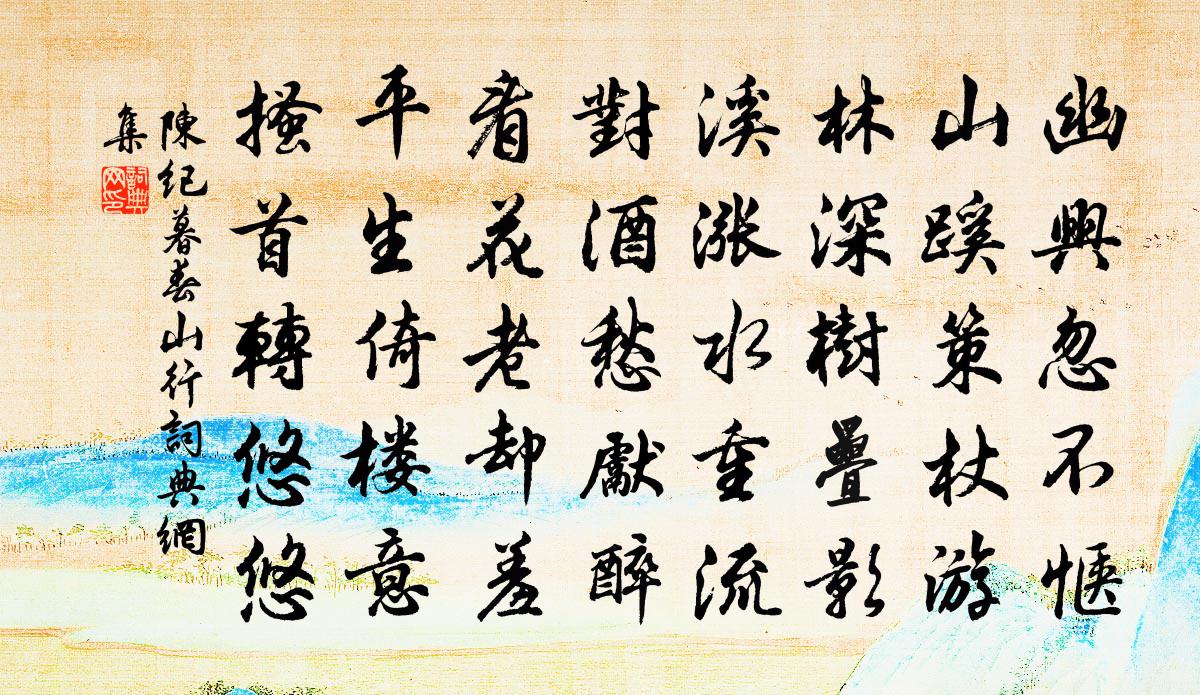 幽興忽不愜
山蹊策杖游
林深樹疊影
溪漲水重流
對酒愁獻醉
看花老却羞
平生倚楼意
搔首轉悠悠
陳紀暮春山行詞典網
集
詞典
网印